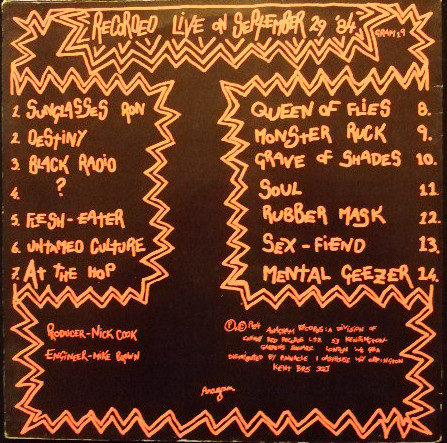 RECORDED LIVE ON SEPTEMBER 29 '84
GRAM:9
1. SUNGLASSES RON
2. DESTINY
3. BLACK RADIO
4. ?
5. FLESH-EATER
6. UNTAMED CULTURE
7. AT THE HOP
QUEEN OF FLIES 8.
MONSTER RUCK 9.
GRAVE OF SHADES 10.
SOUL 11
RUBBER MASK 12
SEX-FIEND 13.
MENTAL GEEZER 14.
PRODUCER-NICK COOK
ENGINEER-MIKE BROWN
Ⓟ © 1984 ANAGRAM RECORDS: A DIVISION OF
CHERRY RED RECORDS LTD 53 KENSINGTON-
GARDENS SQUARE LONDON W2 4BA
DISTRIBUTED BY PINNACLE ORPINGTON
KENT BR5
Anagram